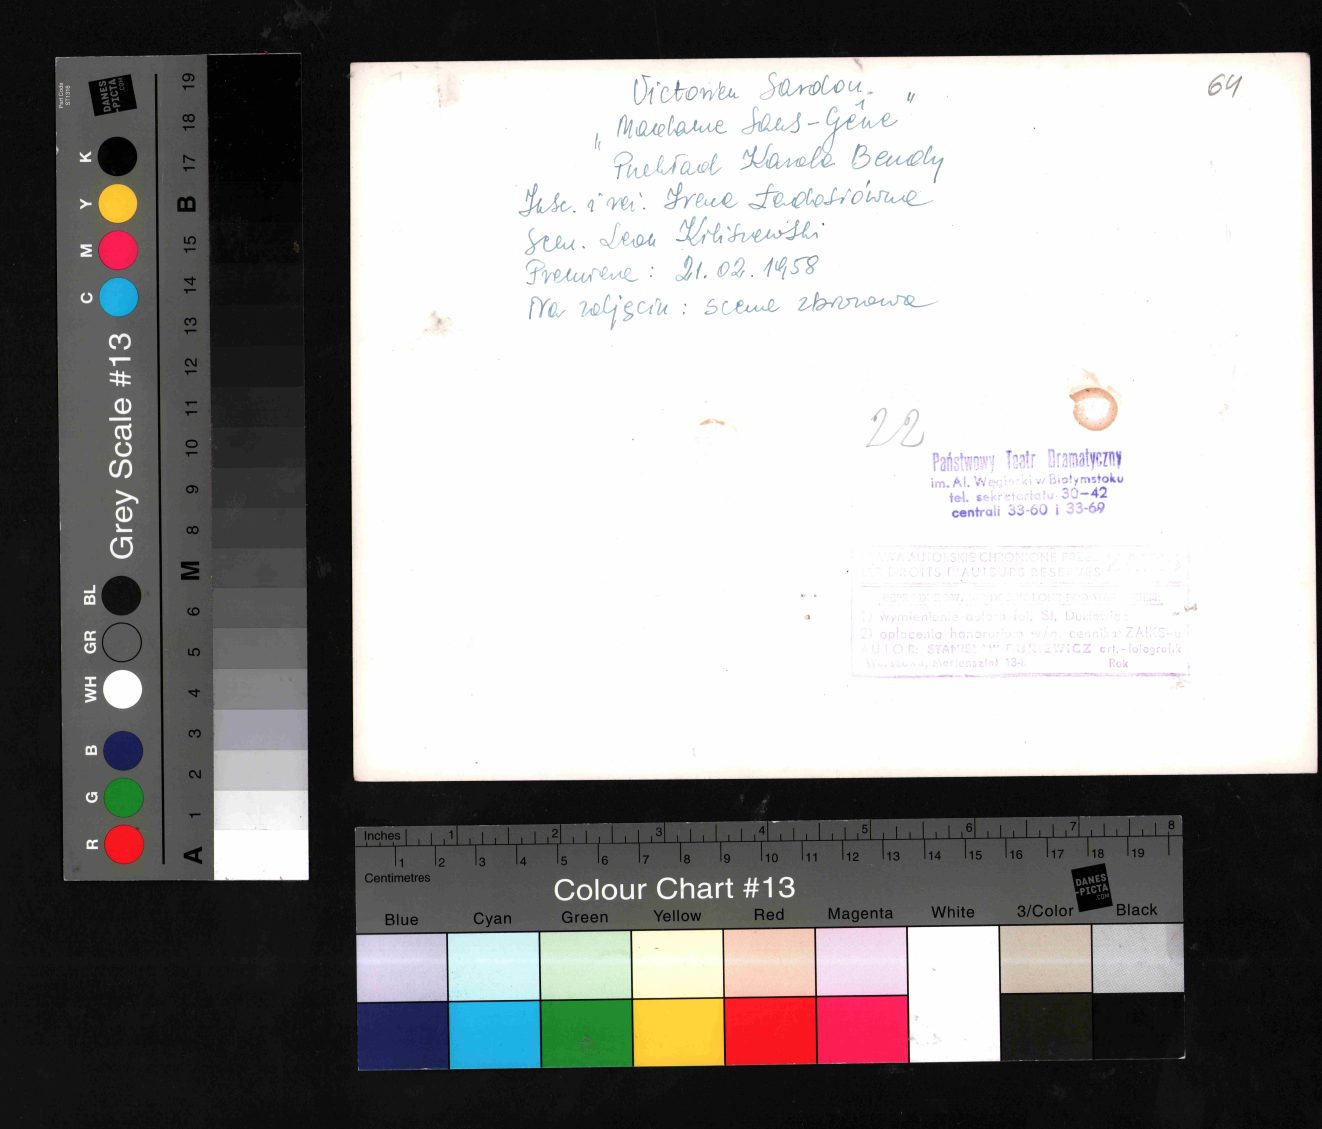 Victorien Sardou
„Madame Sans-Gêne"
Przekład Karola Bendy
Insc. i reż. Irena Ładosiówna
Scen. Leon Kiliszewski
Premiera: 21.02.1958
Na zdjęciu: scena zbiorowa
64
22
Państwowy Teatr Dramatyczny
im. Al. Węgierki w Białymstoku
tel. sekretariatu 30-42
centrali 33-60 i 33-69
PRAWA AUTORSKIE CHRONIONE PRZEZ
LES DROITS D'AUTEURS RESERVES
1) wymienienie autora fot. St.
2) opłacenia honorarium w/g. cennika ZAIKS-u
AUTOR: STANISŁAW art.-fotografik
Warszawa, Mariensztat Rok
Part Code
ST1316
DANES
-PICTA
.COM
Grey Scale #13
K
Y
M
C
BL
GR
WH
B
G
R
19
18
17
B
15
14
13
12
11
10
9
8
M
6
5
4
3
2
1
A
Inches 1 2 3 4 5 6 7 8
1 2 3 4 5 6 7 8 9 10 11 12 13 14 15 16 17 18 19
Centimetres
Colour Chart #13
DANES
-PICTA
.COM
Blue Cyan Green Yellow Red Magenta White 3/Color Black